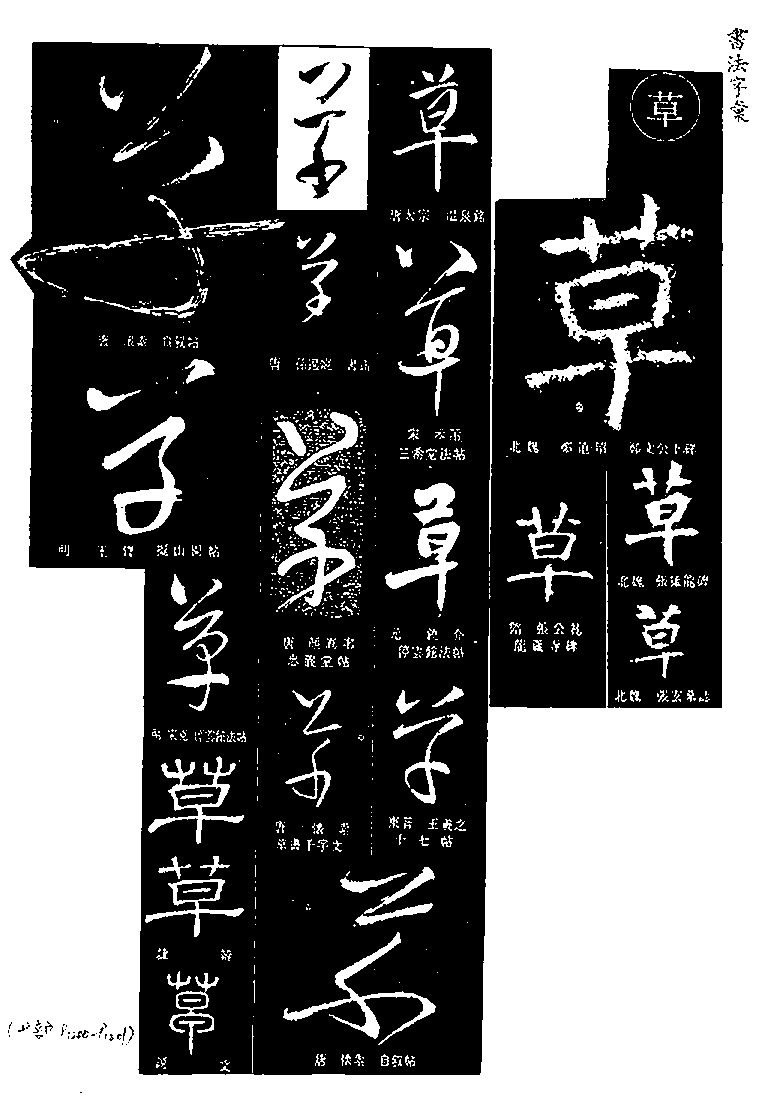 書法字彙
草
草
北魏 鄭道昭 鄭文公下碑
草
北魏 張猛龍碑
草
北魏 張玄墓誌
草
隋 張公礼
龍藏寺碑
草
唐太宗 温泉銘
草
三希堂法帖
草
停雲館法帖
草
東晉 王羲之
十七帖
草
草
唐 孫過庭 書譜
草
唐 顏真卿
忠義堂帖
草
唐 懷素
草書千字文
草
唐 懷素 自叙帖
草
唐 懷素 自叙帖
草
明 王鐸 擬山園帖
草
明 宋克 停雲館法帖
草
草
隸辨
草
説文